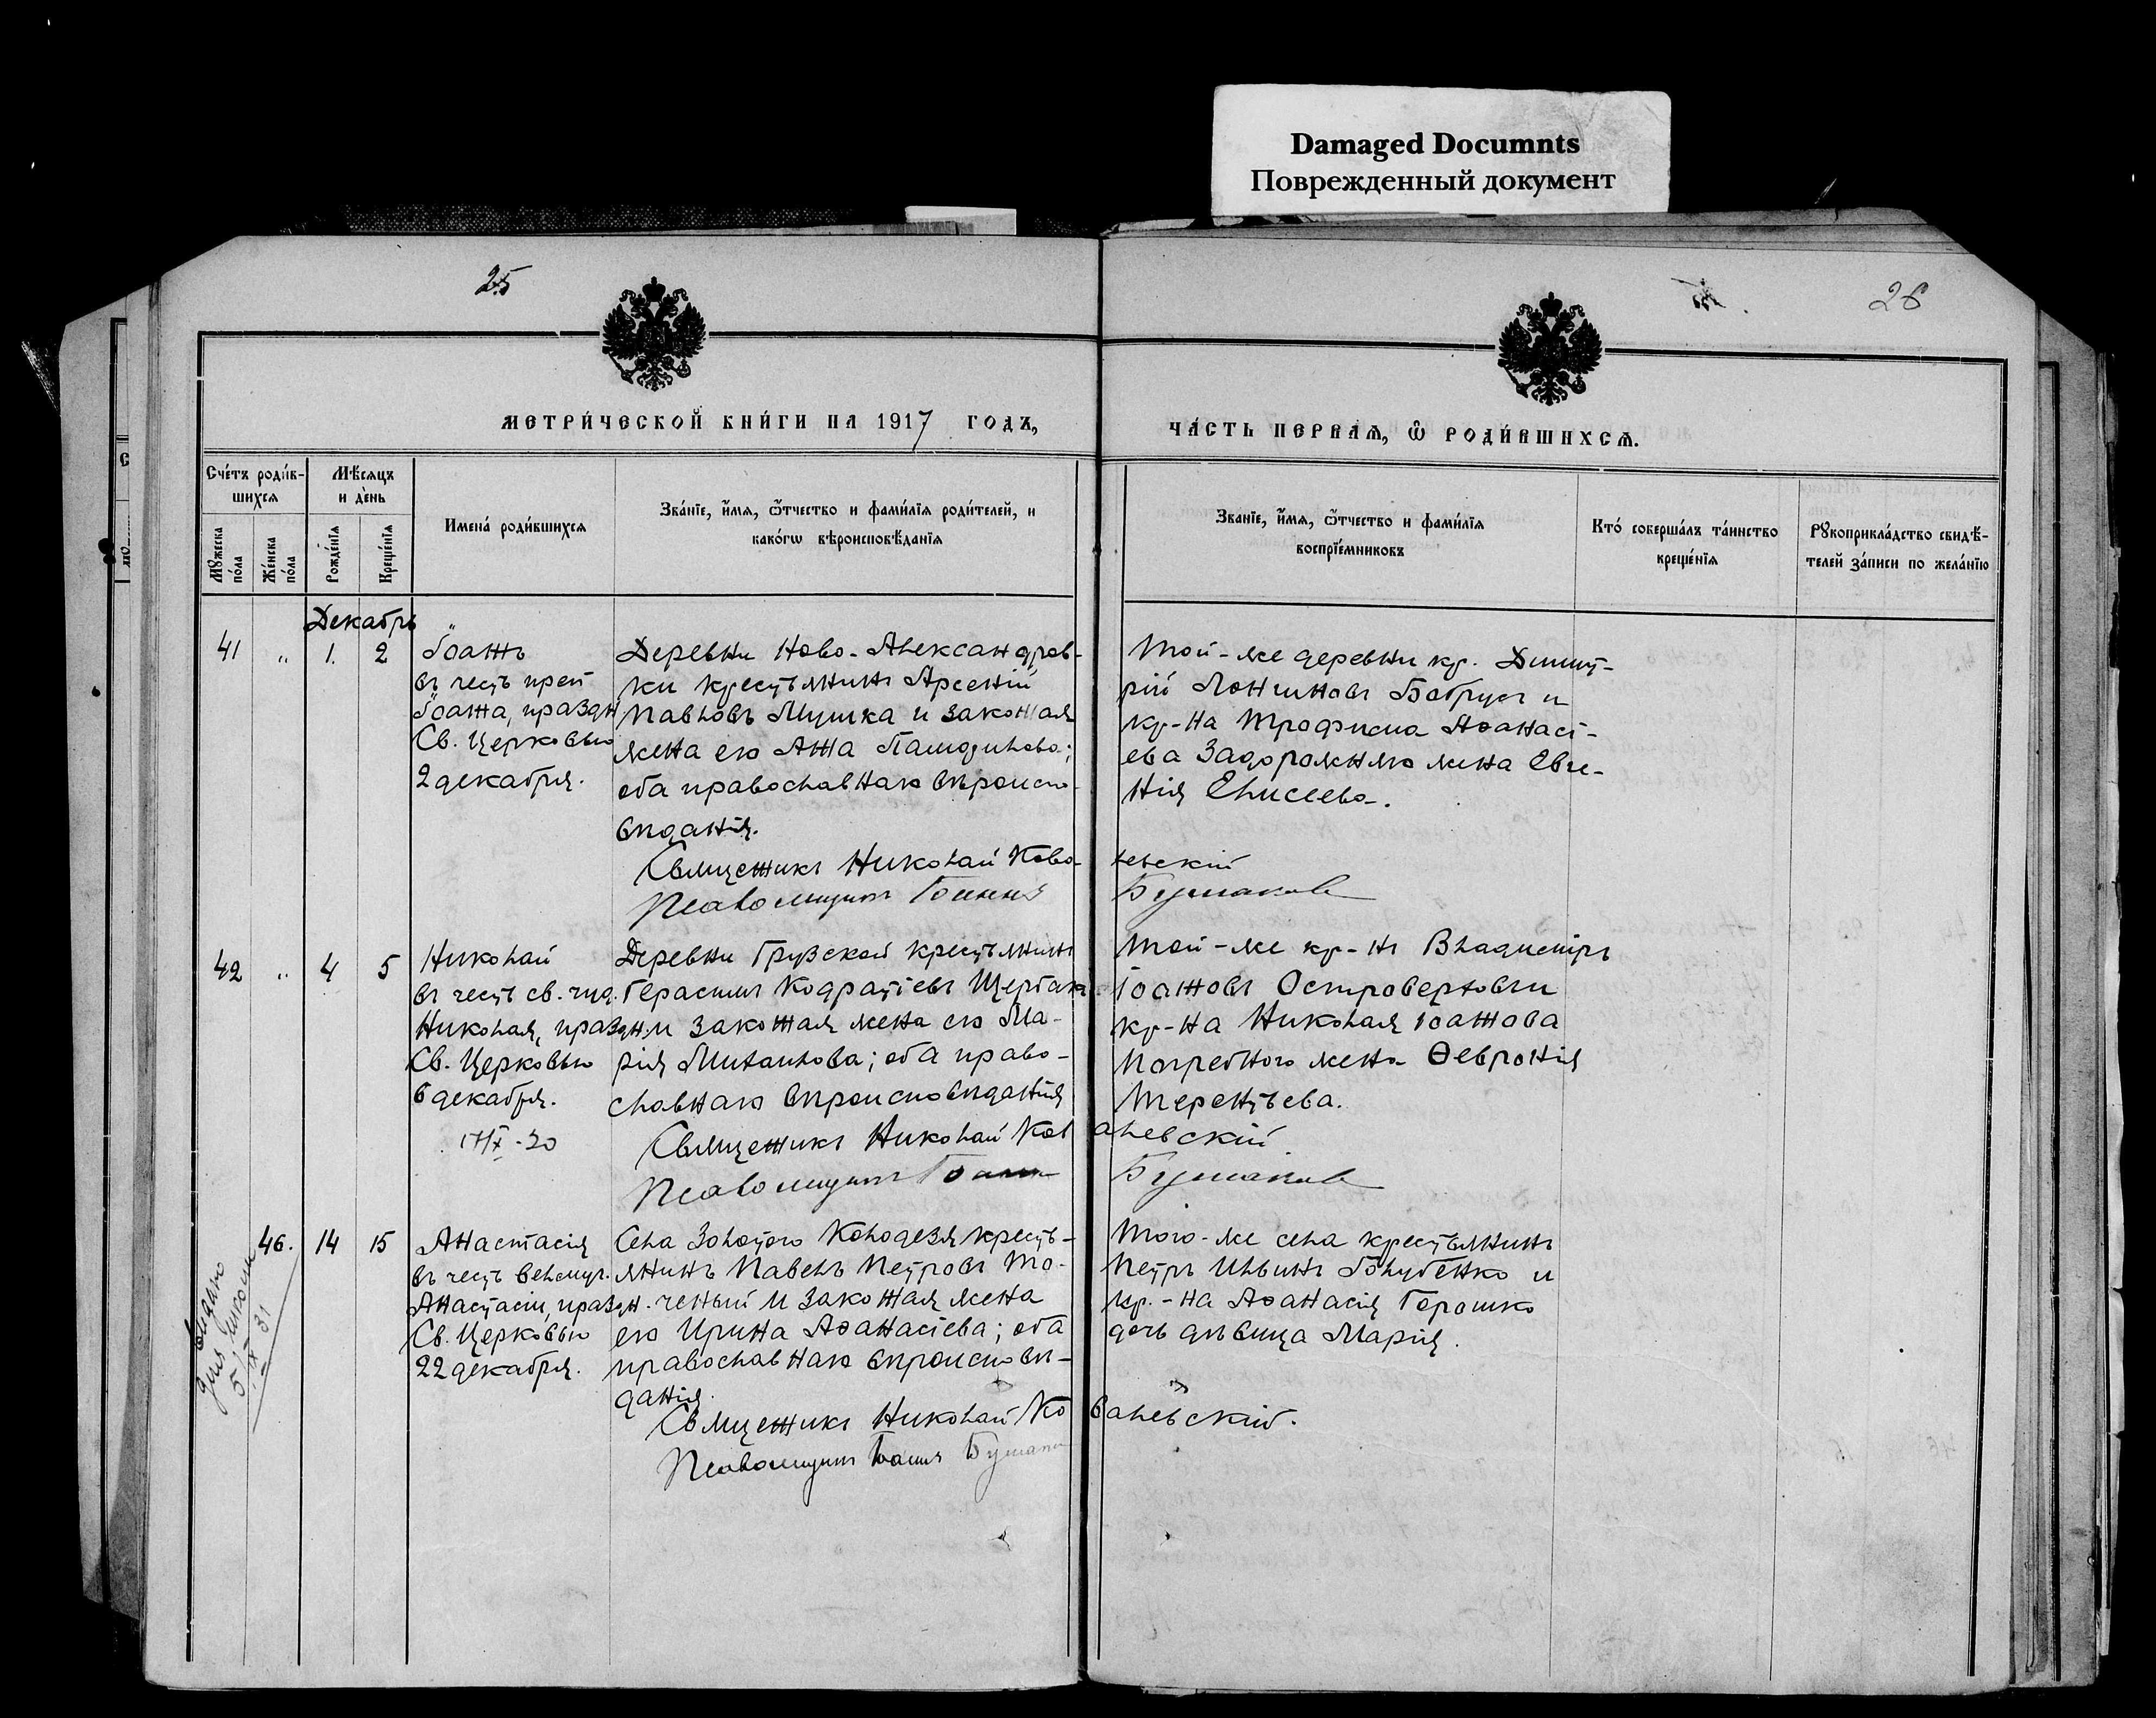 Damaged Documnts
Поврежденный документ
25
26
МЕТРИ́ЧЕСКОЙ КНИ́ГИ НА 1917 ГОДЪ,
ЧА́СТЬ ПЕРВАЯ, Ѿ РОДИ́ВШИХСЯ.
Сче́тъ роди́в-
шихся
Мѣ́сяцъ
и де́нь
Мꙋжеска по́ла
Же́нска по́ла
Рожде́нїя
Креще́нїя
Имена́ роди́вшихся
Зва́нїе, и҆́мя, ѻ҆́тчество и фами́лїя роди́телей, и
како́гѡ вѣроисповѣ́данїя
Зва́нїе, и҆́мя, ѻ҆́тчество и фами́лїя
воспрїе́мниковъ
Кто́ соверша́лъ та́инство
креще́нїя
Рꙋкоприкла́дство свидѣ́-
телей за́писи по жела́нїю
Декабрь
41 " 1. 2
Іоаннъ
въ честь преп
Іоанна, праздн
Св. Церковью
2 декабря.
Деревни Ново-Александров-
ки крестьянинъ Арсеній
Павловъ Мушка и законная
жена его Анна
оба православнаго вѣроиспо-
вѣданія.
Той-же деревни кр. Димит-
рій Логиновъ и
кр-на Трофима Аѳанасі-
ева Задорожняго жена Евге-
нія Елисеева.
Священникъ Николай Кова-
левскій
Псаломщикъ Іоаннъ
Бушаковъ
42 " 4 5
Николай
въ честь св. чуд.
Николая, праздн.
Св. Церковью
6 декабря.
Деревни Грузской крестьянинъ
Герасимъ Кодратіевъ Щербакъ
и законная жена его Ма-
рія Михаилова; оба право-
славнаго вѣроисповѣданія
Той-же кр-нъ Владиміръ
Іоанновъ Островерховъ и
кр-на Николая Іоаннова
Погребного жена Ѳевронія
Терентьева.
Священникъ Николай Ков
алевскій
Псаломщикъ Іоаннъ
Бушаковъ
46. 14 15
Анастасія
въ честь велмуч.
Анастасіи, праздн.
Св. Церковью
22 декабря.
Села Золотого Колодезя кресть-
янинъ Павелъ Петровъ То-
ченый и законная жена
его Ирина Аѳанасіева; оба
православнаго вѣроисповѣ-
данія.
Того-же села крестьянинъ
Петръ Ильинъ Голубенко и
кр.-на Аѳанасія Горошко
дочь дѣвица Марія.
Священникъ Николай Ко
валевскій.
Псаломщикъ Іоаннъ Бушаковъ
Видано
для школи